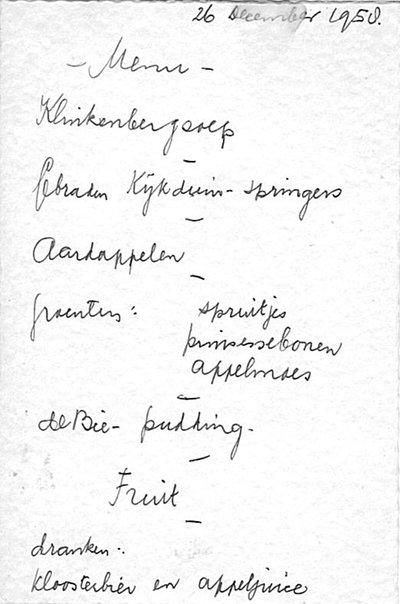 26 December 1958.
- Menu -
Klinkenbergsoep
-
Gebraden Kijkduin-springers
-
Aardappelen
-
groenten: spruitjes
prinsessebonen
appelmoes
-
de Bie- pudding.
-
Fruit
-
dranken:
Kloosterbier en appeljuice